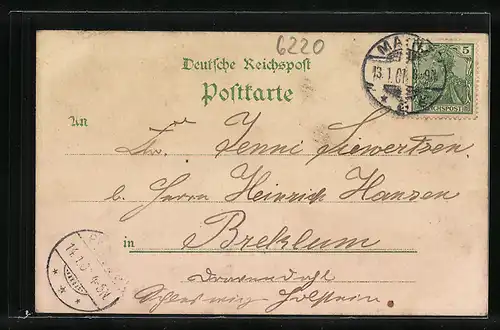 6220
Deutsche Reichspost
Postkarte
5
REICHSPOST
13.1.01.
An
Frl. Jenni Siewertsen
b. Herrn Heinrich Hansen
in Breklum
Schleswig Holstein